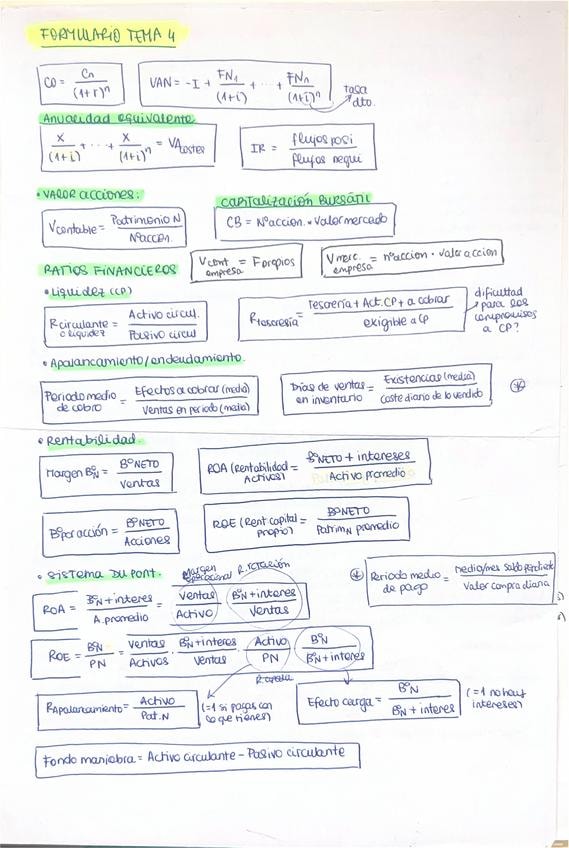 FORMULARIO TEMA 4
C0 = Cn / (1+r)^n
VAN = -I + FN1 / (1+i) + ... + FNn / (1+i)^n
tasa dto.
Anualidad equivalente
X / (1+i) + ... + X / (1+i)^n = VAcostes
IR = flujos posi / flujos negui
• VALOR ACCIONES:
Vcontable = Patrimonio N / Nºaccion.
CAPITALIZACIÓN BURSÁTIL
CB = Nºaccion. · Valor mercado
RATIOS FINANCIEROS
Vcont empresa = F.propios
Vmerc. empresa = nºaccion · valor accion
• Liquidez (CP)
Rcirculante o liquidez = Activo circul. / Pasivo circul
Rtesorería = Tesorería + Act.CP + a cobrar / exigible a CP
dificultad para los compromisos a CP?
• Apalancamiento/endeudamiento.
Periodo medio de cobro = Efectos a cobrar (media) / Ventas en periodo (media)
Días de ventas en inventario = Existencias (media) / Coste diario de lo vendido
*
• Rentabilidad.
Margen BºN = BºNETO / Ventas
ROA (Rentabilidad Activos) = BºNETO + intereses / Activo promedio
Bºpor acción = BºNETO / Acciones
ROE (Rent capital propio) = BºNETO / Patrim N promedio
• SISTEMA DU PONT.
Margen operacional
R. rotación
ROA = BºN + interes / A. promedio = Ventas / Activo · BºN + interes / Ventas
* Periodo medio de pago = medio/mes saldo / Valor compra diaria
ROE = BºN / PN = Ventas / Activos · BºN + interes / Ventas · Activo / PN · BºN / BºN + interes
Rapalancamiento = Activo / Pat.N
(=1 si pagas con lo que tienes)
Efecto carga = BºN / BºN + interes
(=1 no hay intereses)
Fondo maniobra = Activo circulante - Pasivo circulante